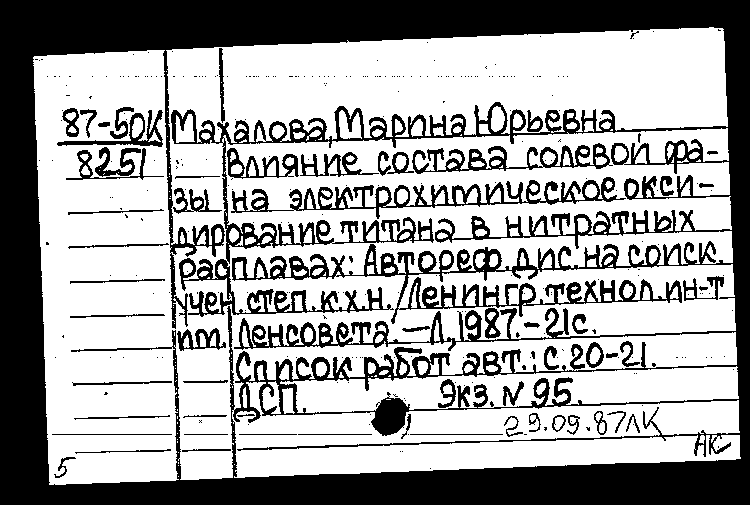 87-50К Махалова, Марина Юрьевна.
8251 Влияние состава солевой фа-
зы на электрохимическое окси-
дирование титана в нитратных
расплавах: Автореф. дис. на соиск.
учен. степ. к.х.н. / Ленингр. технол. ин-т
им. Ленсовета. — Л, 1987. - 21с.
Список работ авт.: с. 20-21.
ДСП. Экз. N 95.
29.09.87ЛК
АК
5